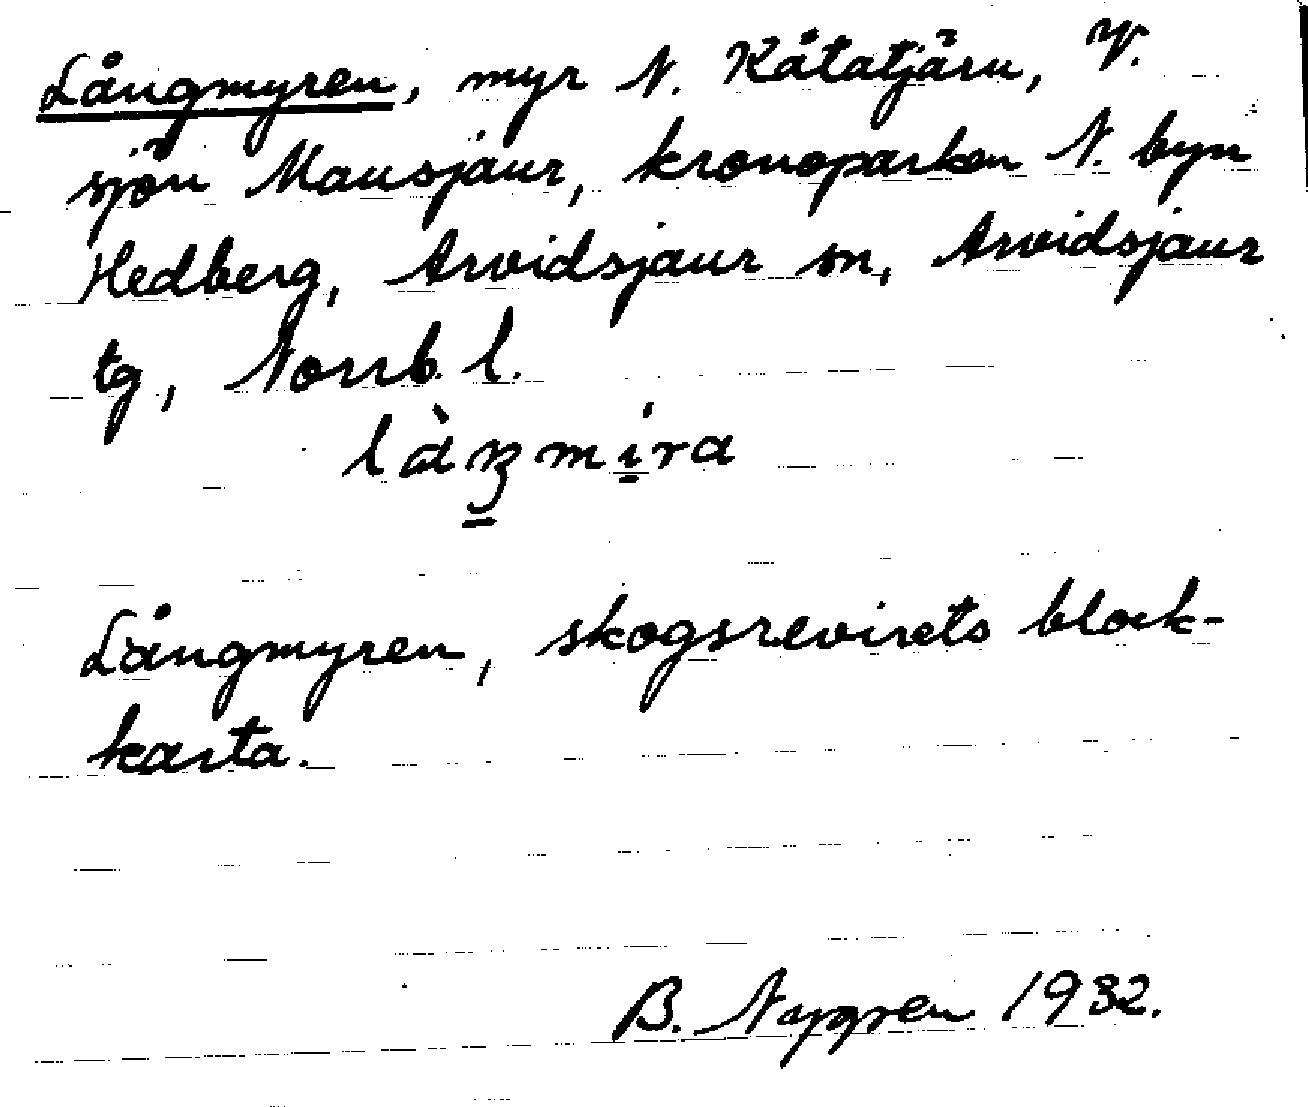 Långmyren, myr N. Kåtatjärn, V.
sjön Mausjaur, kronoparken N. byn
Hedberg, Arvidsjaur sn, Arvidsjaur
tg, Norrb. l.
Långmyren, skogsrevirets block-
karta.
B. Nygren 1932.